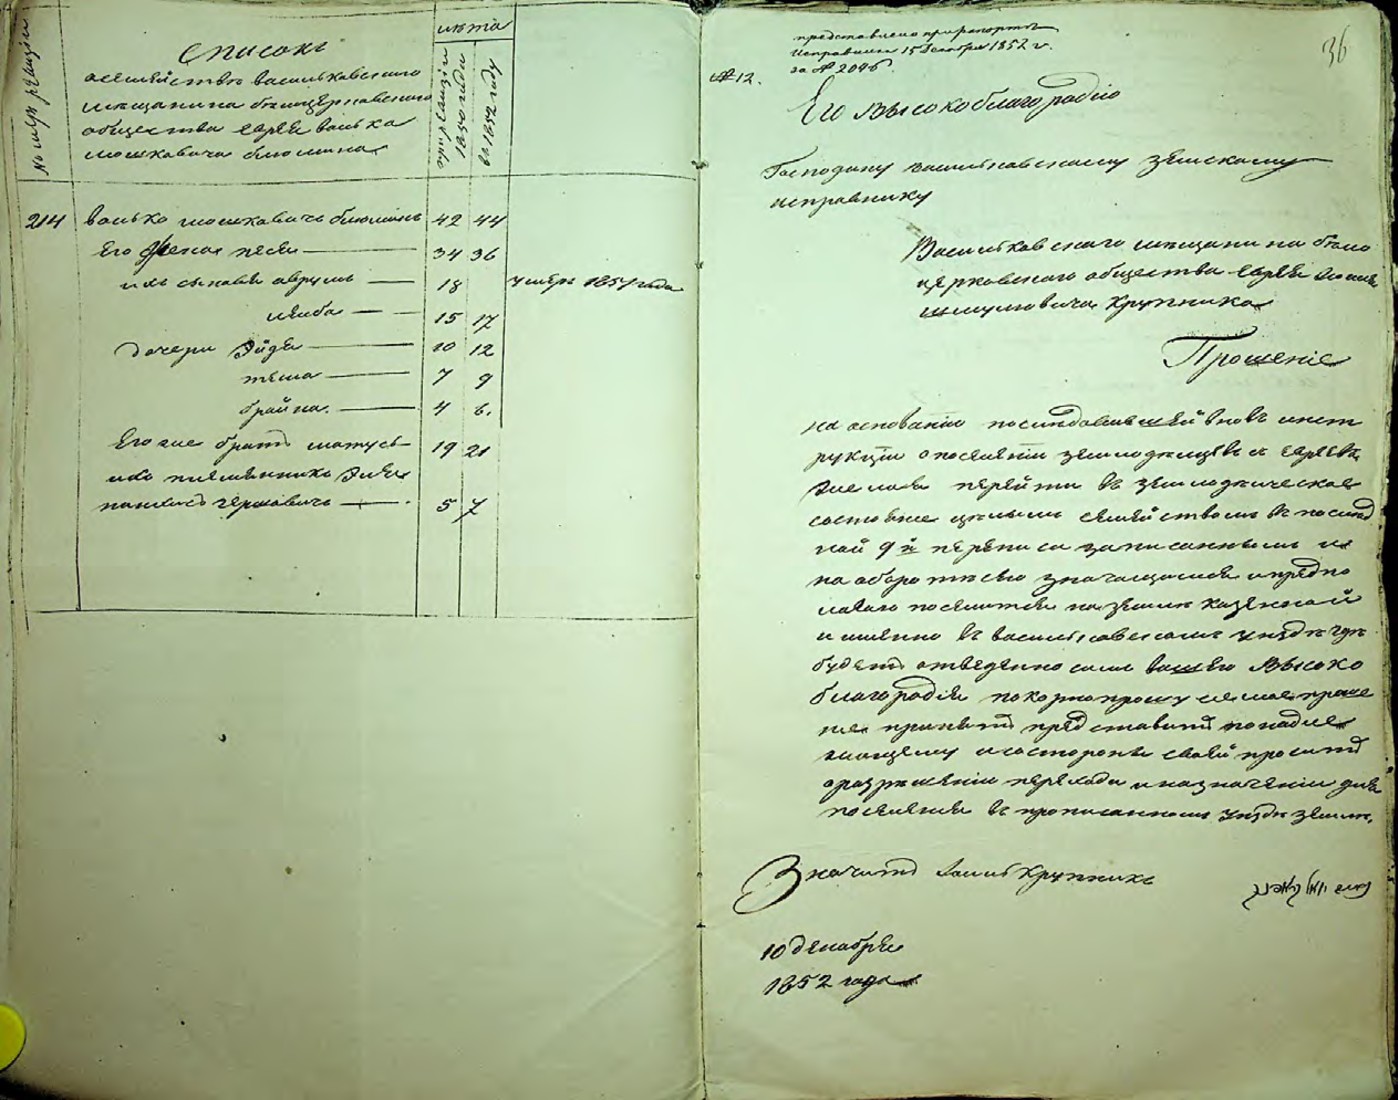 Номеръ ревизіи
Списокъ
о семѣйствѣ васильковскаго
мѣщанина бѣлоцерковскаго
общества еврея Волька
мошковича блюмина
лѣта
по ревизіи
1850 года
въ 1852 году
214 Волько мошковичъ блюминъ 42 44
Его жена песя 34 36
ихъ сыновья аврумъ 18 умеръ 1851 года
лейба 15 17
дочери Эйдя 10 12
тема 7 9
брайна 4 6.
Его же братъ матусъ 19 21
ихъ племянникъ
гершковичъ 5 7
36
представлено при рапортѣ
Исправника 15 Декабря 1852 г.
за № 2096.
№ 12.
Его Высокоблагородію
Господину васильковскому земскому
исправнику
Васильковскаго мѣщанина бѣло
церковскаго общества еврея
шмулевича Крупника
Прошеніе
на основаніи последовавшей вновь инст
рукціи о поселеніи земледельцевъ изъ евреевъ
желая перейти въ земледѣлческое
состояніе цѣлымъ семѣйствомъ въ послѣд
ней 9й переписи записаннымъ и
на оборотѣ сего значащимся и предпо
лагаю поселится на землѣ казенной
и именно въ васильковскомъ уѣздѣ гдѣ
будетъ отведенно само вашего Высоко
благородія покорно прошу сіе мое проше
ніе принять представить по надле
жащему и со стороны своей просить
о разрѣшеніи перехода и назначеніи для
поселенія въ прописанномъ уѣздѣ земли.
Значитъ Крупникъ
10 декабря
1852 года